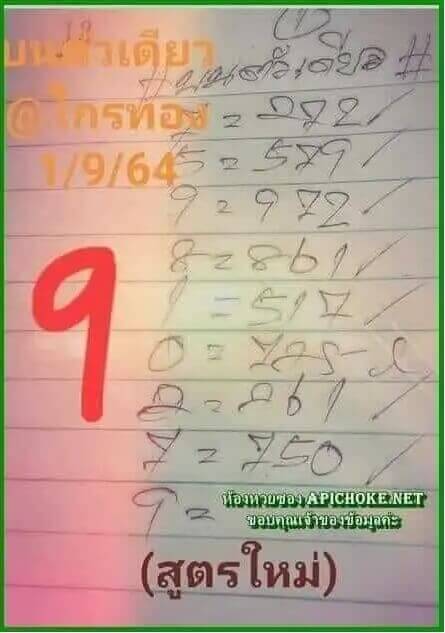 (1)
บนตัวเดียว
#บนตัวเดียว#
@ไกรทอง
7 = 272 /
1/9/64
5 = 579 /
9 = 972 /
9
8 = 861 /
1 = 517 /
0 = 725-
2 = 261 /
7 = 750 /
9 =
ห้องหวยซอง APICHOKE.NET
ขอบคุณเจ้าของข้อมูลค่ะ
(สูตรใหม่)